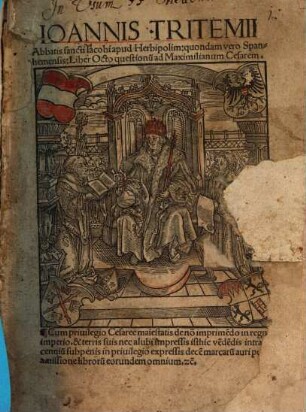 In Usum
IOANNIS TRITEMII
Abbatis sancti Iacobi apud Herbipolim: quondam vero Span
hemensis: Liber Octo questionū ad Maximilianum Cesarem.
¶ Cum priuilegio Cesaree maiestatis de nō imprimēdo in regn
imperio. & terris suis nec alubi impressis isthic vēdēdis intra
cenniū sub penis in priuilegio expressis decē marcarū auri pu
amissione librorū eorundem omnium. ⁊c̄.